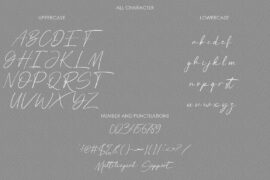 ALL CHARACTER
UPPERCASE
ABCDEFG
HIJKLM
NOPQRST
UVWXYZ
LOWERCASE
abcdef
ghijklm
nopqrst
uvwxyz
NUMBER AND PUNCTUATIONS
0123456789
Multilingual Support